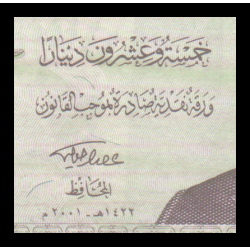 خمسة وعشرون دينارا
ورقة نقدية صادرة بموجب القانون
المحافظ
١٤٢٢هـ - ٢٠٠١م